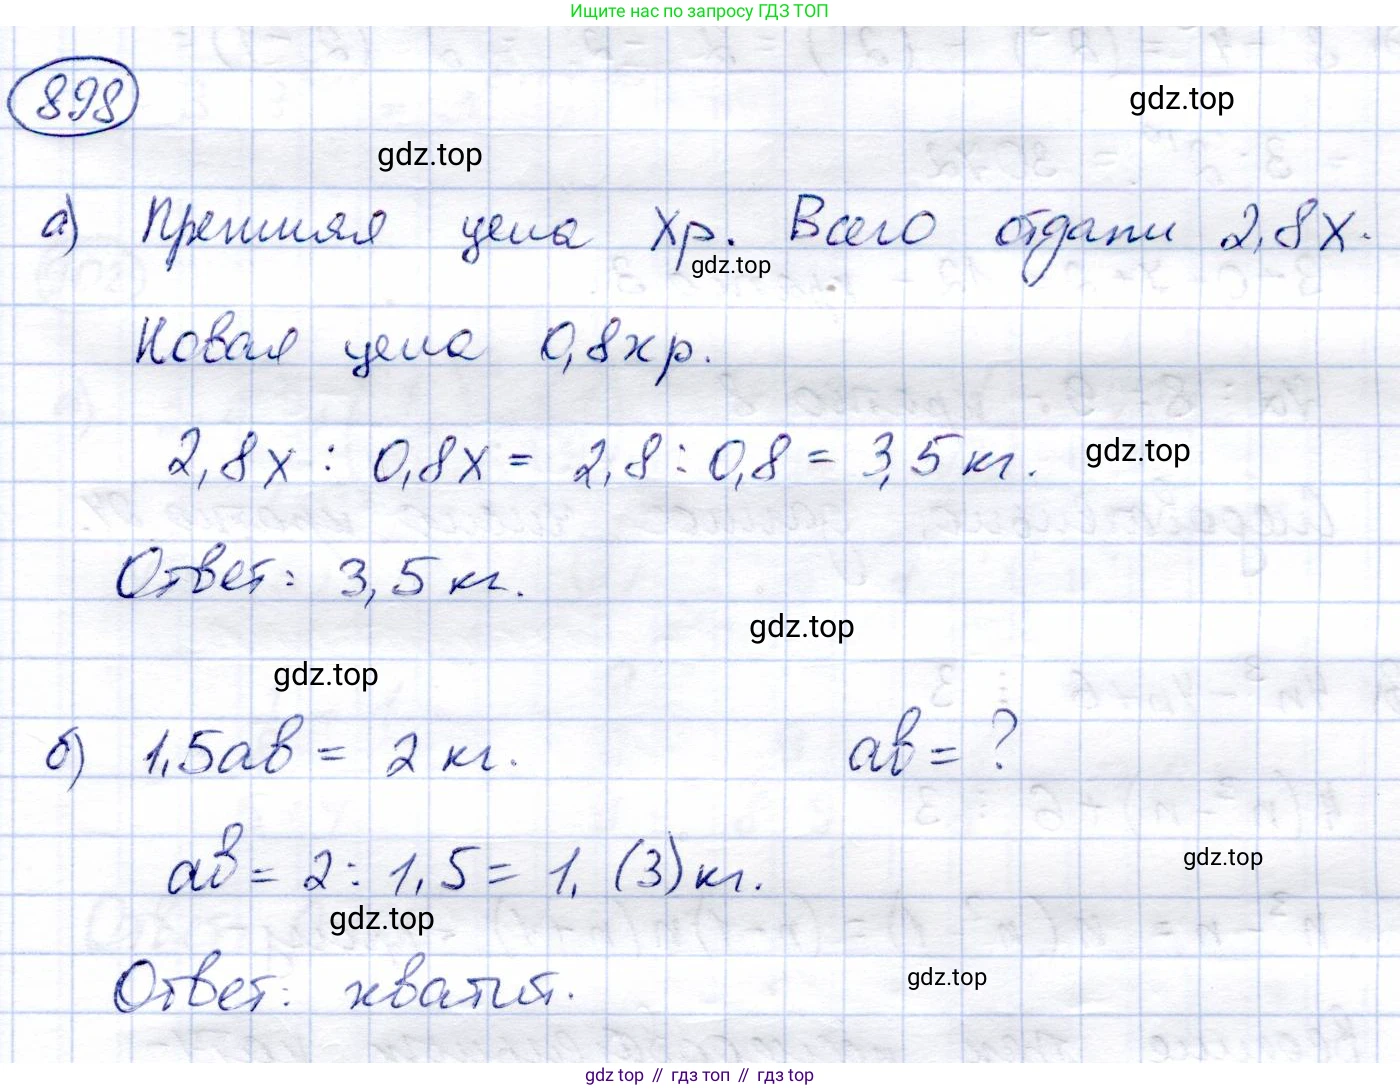 Ищите нас по запросу ГДЗ ТОП
898
gdz.top
gdz.top
а) Прешняя цена хр. Всего отдали 2,8х.
gdz.top
Новая цена 0,8хр.
2,8х : 0,8х = 2,8 : 0,8 = 3,5 кг.
gdz.top
Ответ: 3,5 кг.
gdz.top
gdz.top
б) 1,5ав = 2 кг. ав = ?
ав = 2 : 1,5 = 1,(3) кг.
gdz.top
gdz.top
Ответ: хватит.
gdz.top
gdz top // гдз топ // gdz top